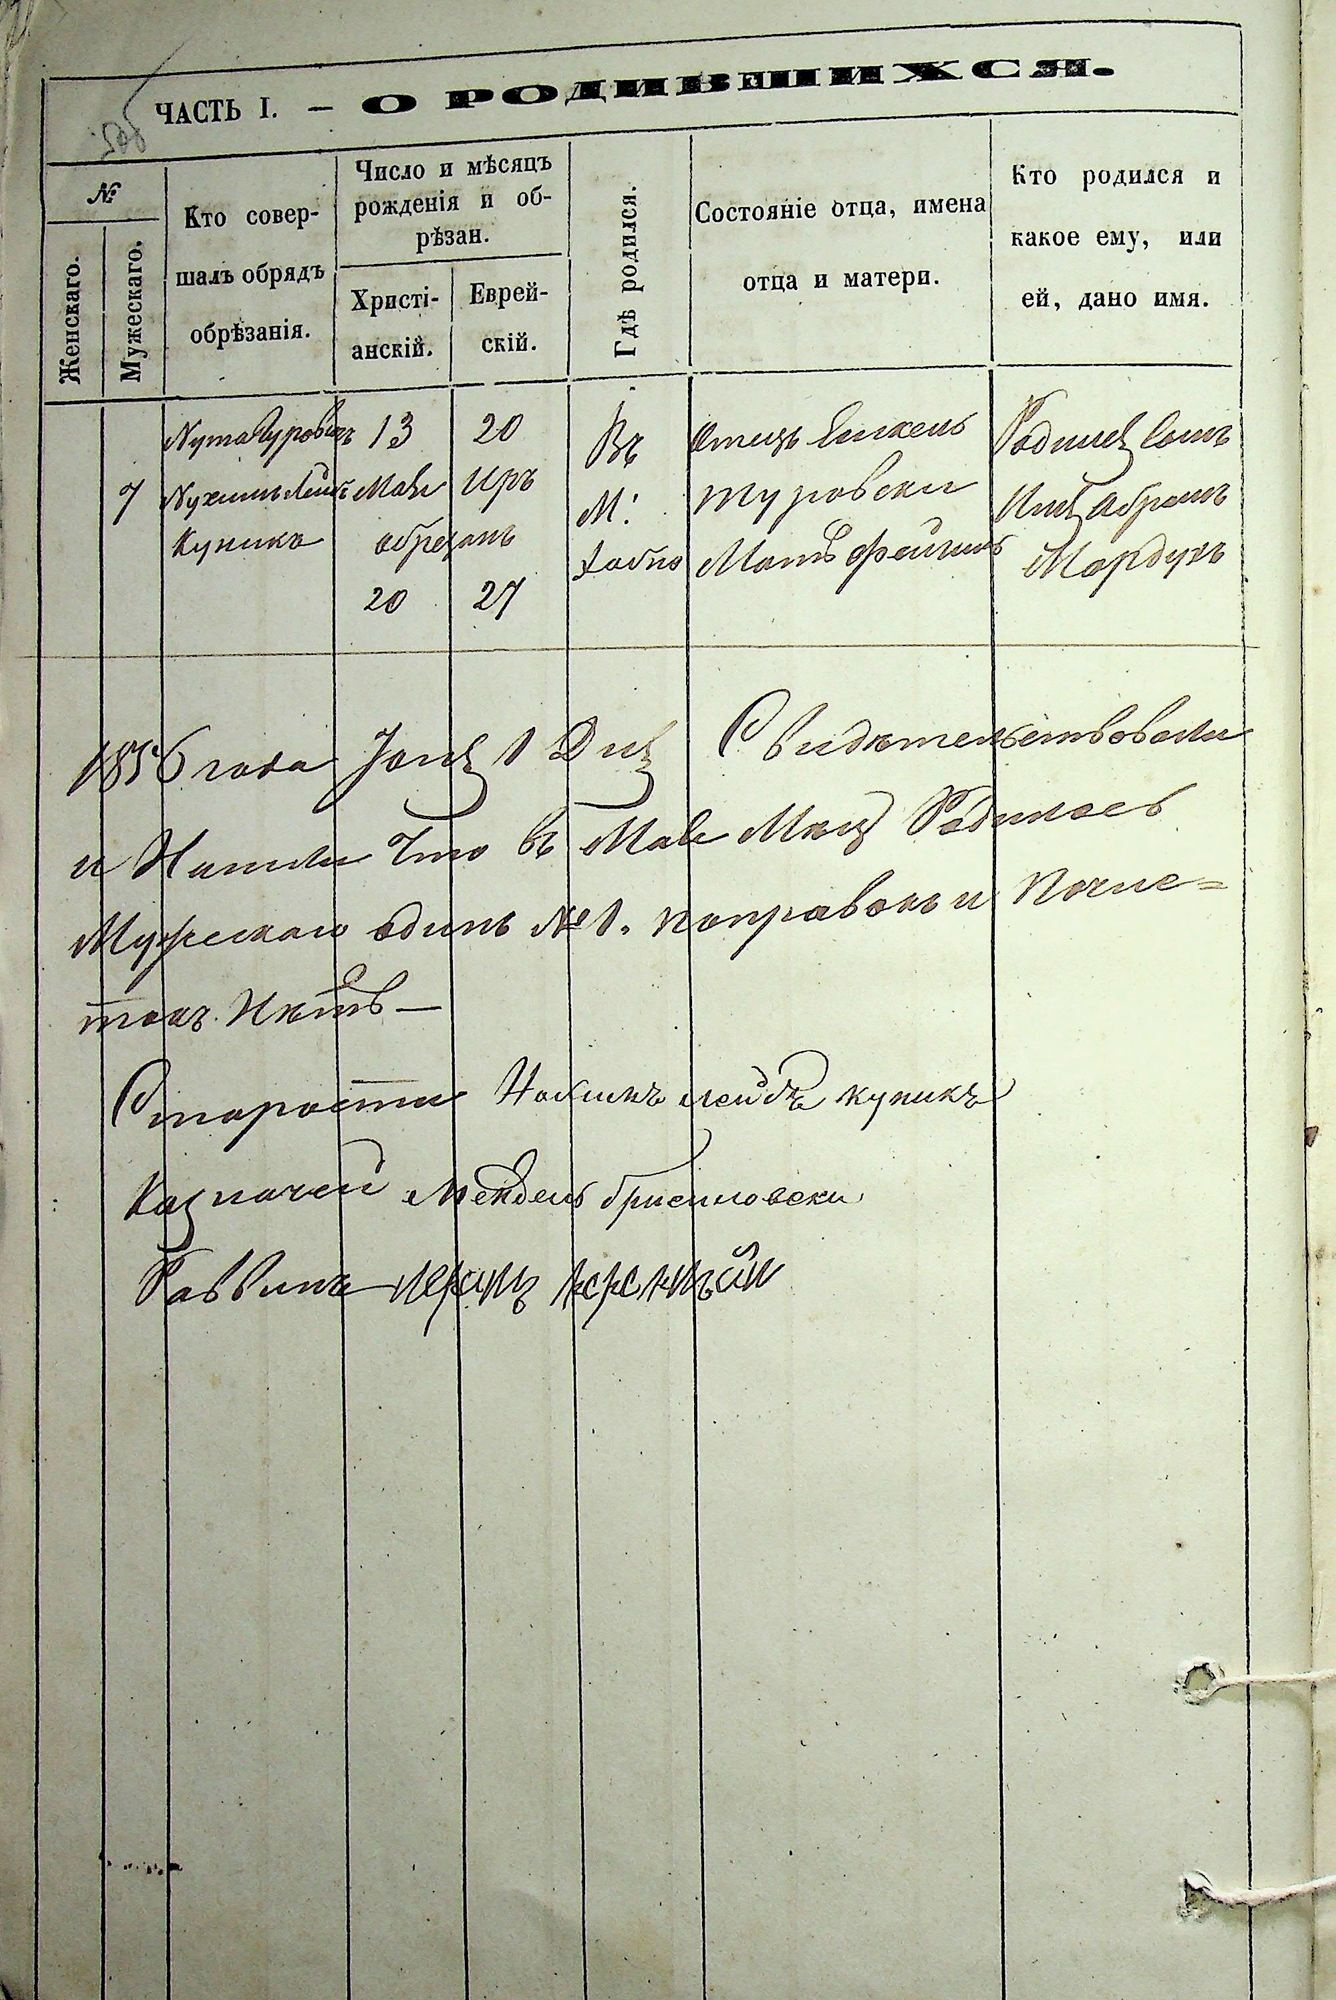 ЧАСТЬ I. — О РОДИВШИХСЯ.
№
Женскаго.
Мужескаго.
Кто совер-
шалъ обрядъ
обрѣзанія.
Число и мѣсяцъ
рожденія и об-
рѣзан.
Христі-
анскій.
Еврей-
скій.
Гдѣ родился.
Состояніе отца, имена
отца и матери.
Кто родился и
какое ему, или
ей, дано имя.
7
Нута Гуровичъ
Нухимъ Лейбъ
Купикъ
13
Маія
обрезанъ
20
20
Иръ
27
Въ
М:
Хабно
Отецъ Янкель
Туровски
Мать Фейгинъ
Родился Сынъ
Имя Абрамъ
Мордухъ
1856 года Іюня 1 Дня Свидѣтельствовали
и Нашли Что въ Маіе Мцѣ Родилось
Мужескаго одинъ № 1. поправокъ и почис=
токъ Нѣтъ —
Староста лейбъ купикъ
Казначей Мендель
Раввинъ